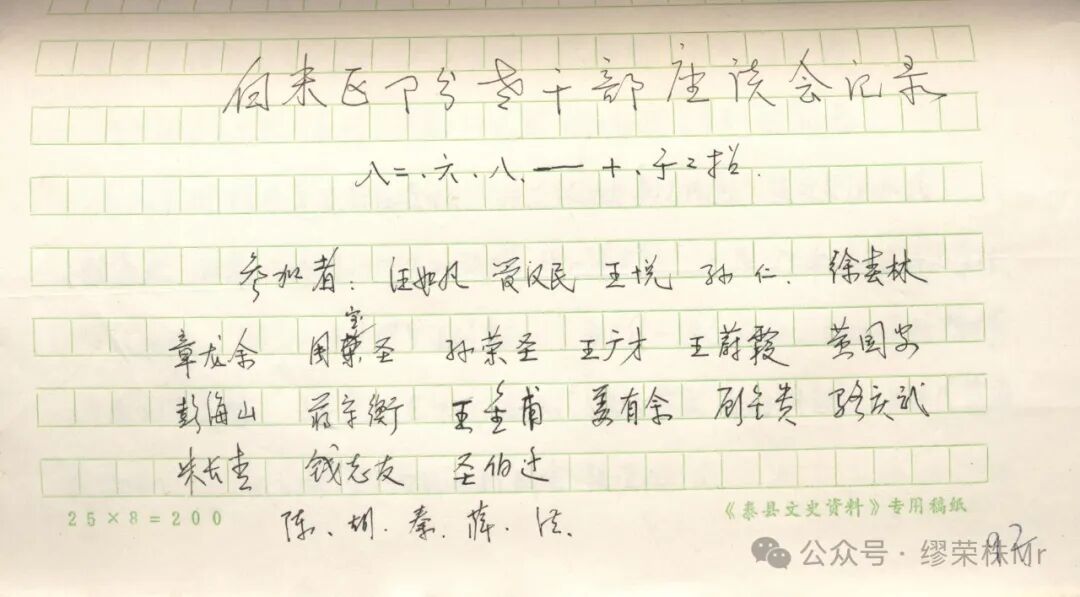 白米区部分老干部座谈会记录
八二.六.八.——十.于二招.
参加者: 汪如凡 贾汉民 王悦 孙仁. 徐春林
章龙余 周宝圣 孙荣圣 王广才 王蔚霞 黄国安
彭海山 蒋宗衡 王金甫 姜有余 顾金贵 骆庆武
朱长青 钱志友 圣伯达
25×8=200 陈.胡.秦.薛.洪. 《泰县文史资料》专用稿纸
公众号·缪荣株Mr